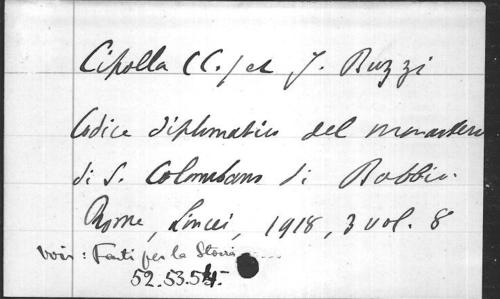 Cipolla (C.) et J. Buzzi
Codice diplomatico del monastero
di S. Colombano di Bobbio.
Rome, Lincei, 1918, 3 vol. 8
Voir : Fonti per la Storia .....
52.53.54.